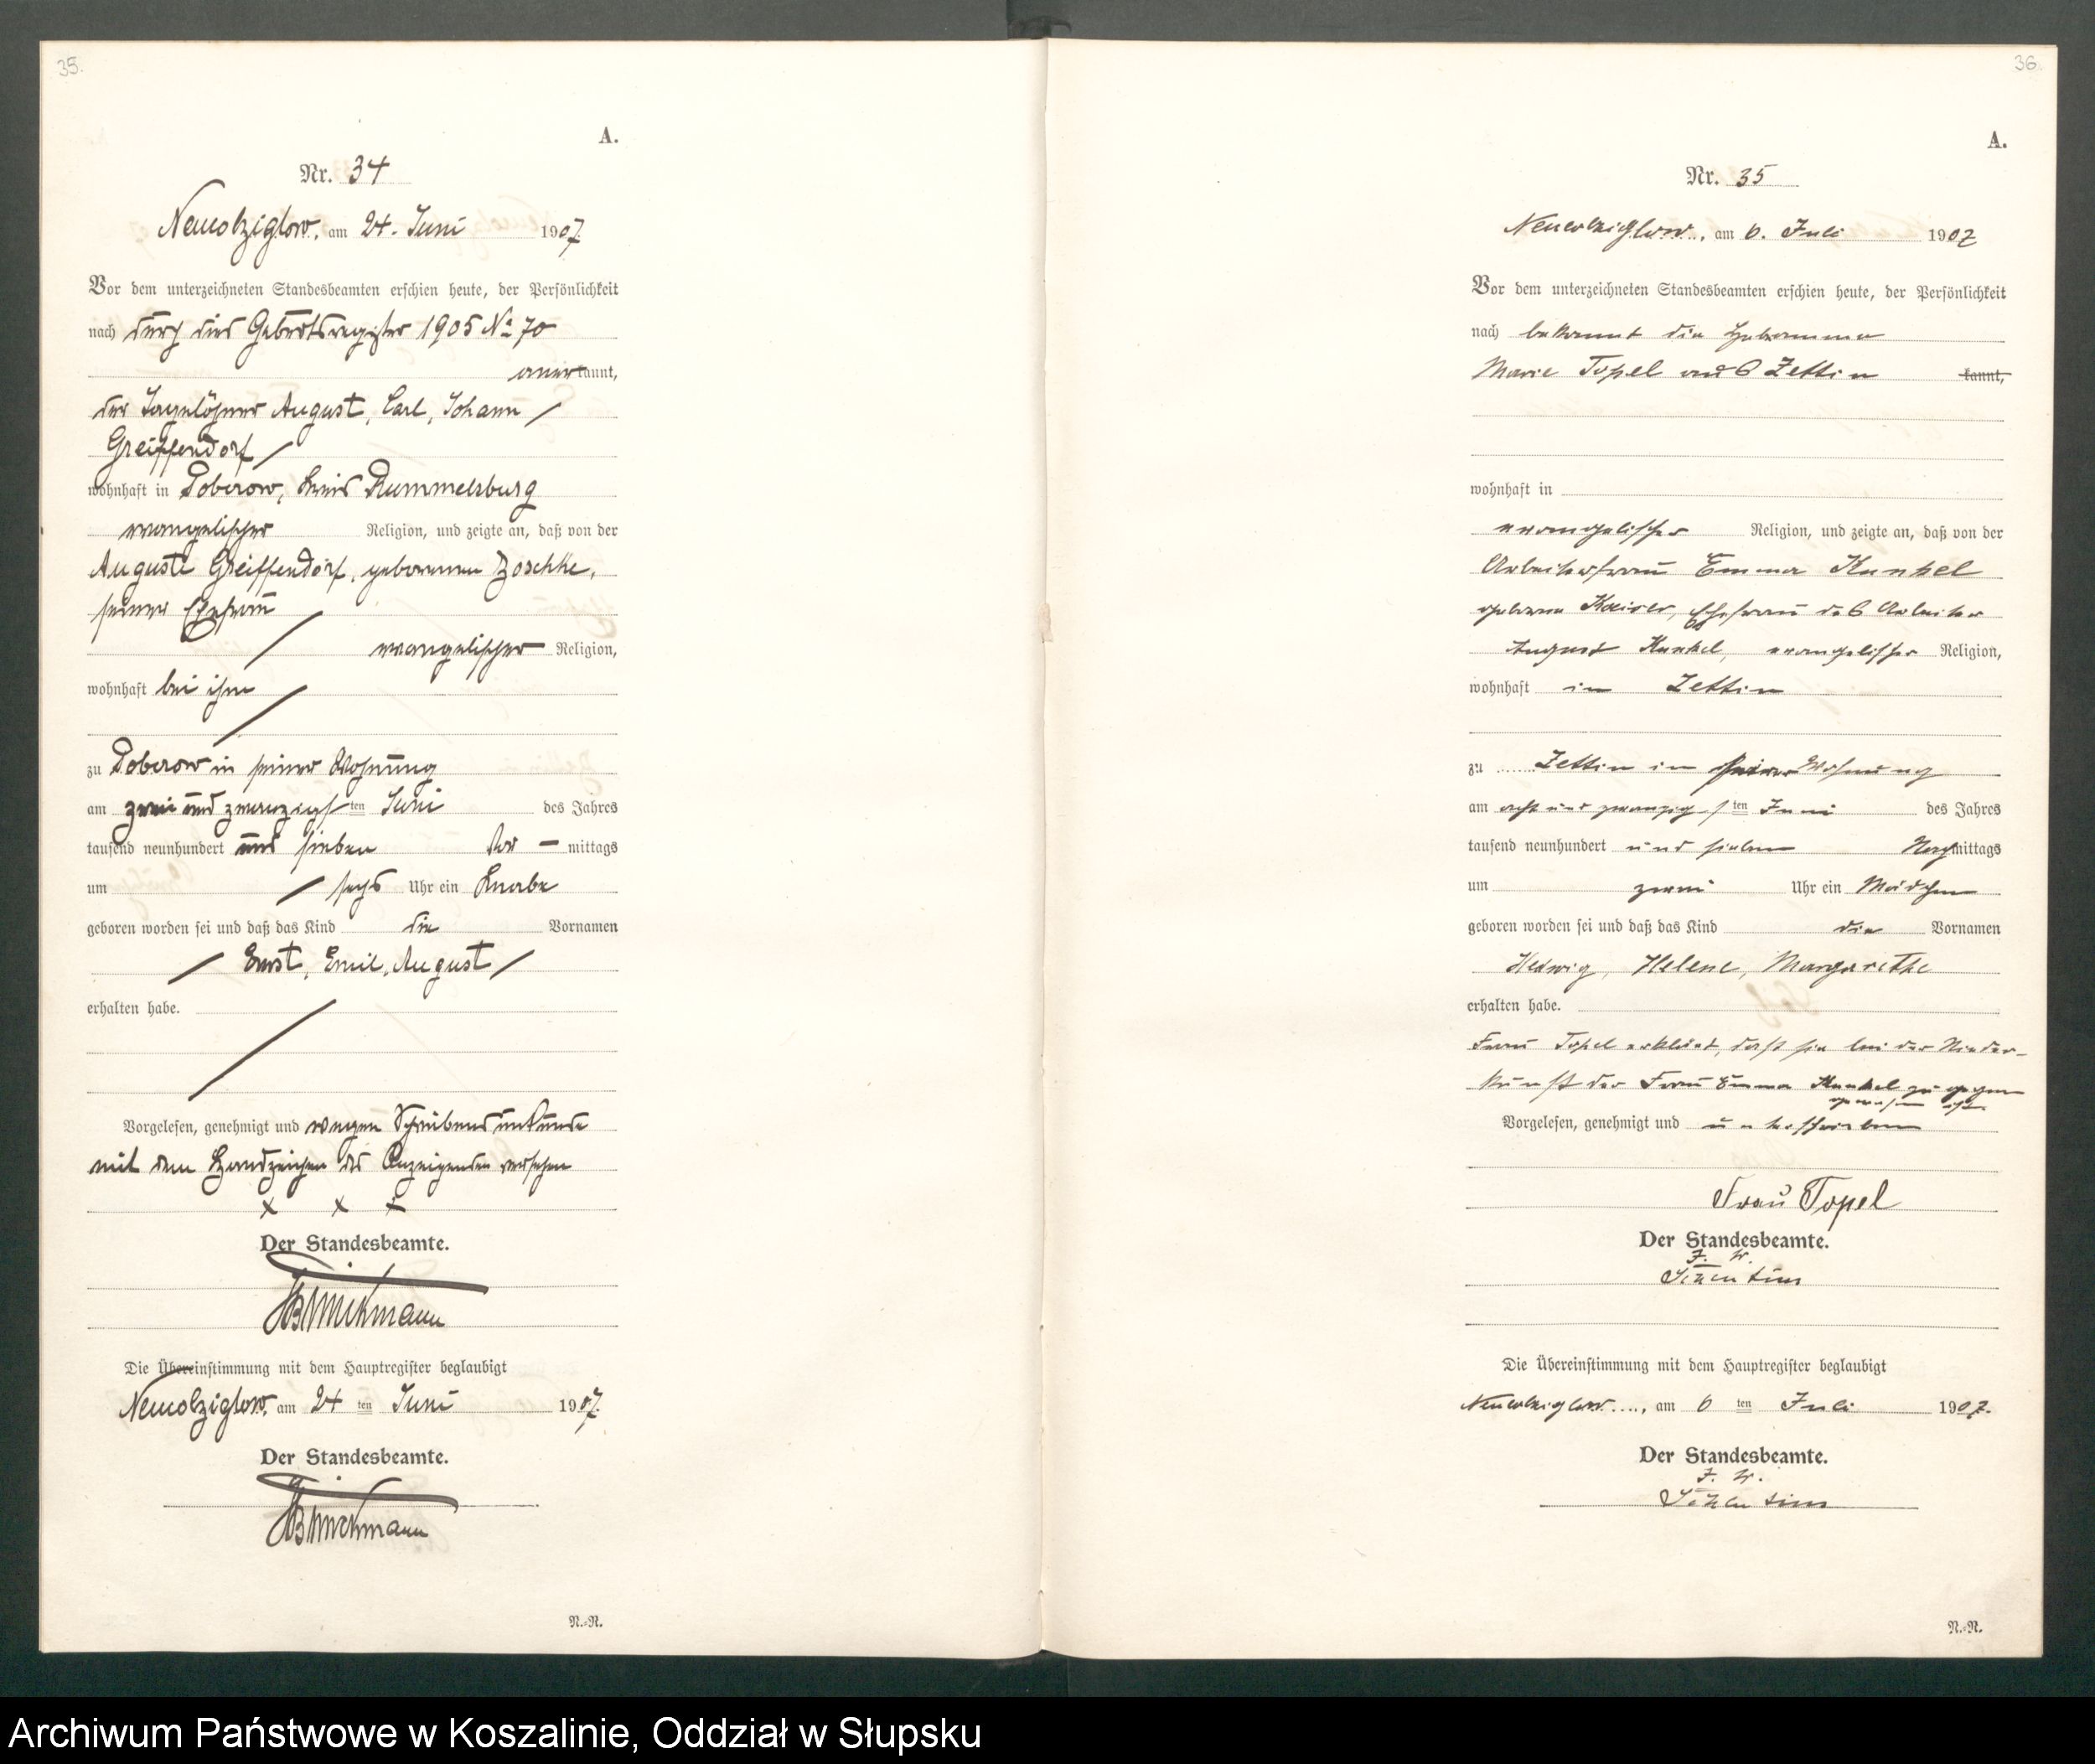 35.
A.
Nr. 34
Neuolziglow, am 24. Juni 1907.
Vor dem unterzeichneten Standesbeamten erschien heute, der Persönlichkeit
nach durch das Geburtsregister 1905 No 70
anerkannt,
der Tagelöhner August, Carl, Johann
Greiffendorf
wohnhaft in Poberow, Kreis Rummelsburg
evangelischer Religion, und zeigte an, daß von der
Auguste Greiffendorf, geborenen Zoschke,
seiner Ehefrau
evangelischer Religion,
wohnhaft bei ihm
zu Poberow in seiner Wohnung
am zwei und zwanzigsten Juni des Jahres
tausend neunhundert und sieben Vor-mittags
um sechs Uhr ein Knabe
geboren worden sei und daß das Kind die Vornamen
Ernst, Emil, August
erhalten habe.
Vorgelesen, genehmigt und wegen Schreibensunkunde
mit dem Handzeichen des Anzeigenden versehen
x x x
Der Standesbeamte.
Die Übereinstimmung mit dem Hauptregister beglaubigt
Neuolziglow, am 24 ten Juni 1907.
Der Standesbeamte.
N.-N.
36.
A.
Nr. 35
Neuolziglow, am 6. Juli 1907
Vor dem unterzeichneten Standesbeamten erschien heute, der Persönlichkeit
nach bekannt die Hebamme
Marie Topel aus Zettin kannt,
wohnhaft in
evangelischer Religion, und zeigte an, daß von der
Arbeiterfrau Emma Kunkel
geborene Kaiser, Ehefrau des Arbeiter
August Kunkel, evangelischer Religion,
wohnhaft in Zettin
zu Zettin in seiner Wohnung
am acht und zwanzigsten Juni des Jahres
tausend neunhundert und sieben Nachmittags
um zwei Uhr ein Mädchen
geboren worden sei und daß das Kind die Vornamen
Hedwig, Helene, Margarethe
erhalten habe.
Frau Topel erklärt, daß sie bei der Nieder-
kunft der Frau Emma Kunkel zugegen
gewesen ist.
Vorgelesen, genehmigt und unterschrieben
Frau Topel
Der Standesbeamte.
J. V.
Die Übereinstimmung mit dem Hauptregister beglaubigt
Neuolziglow, am 6 ten Juli 1907.
Der Standesbeamte.
J. V.
N.-N.
Archiwum Państwowe w Koszalinie, Oddział w Słupsku